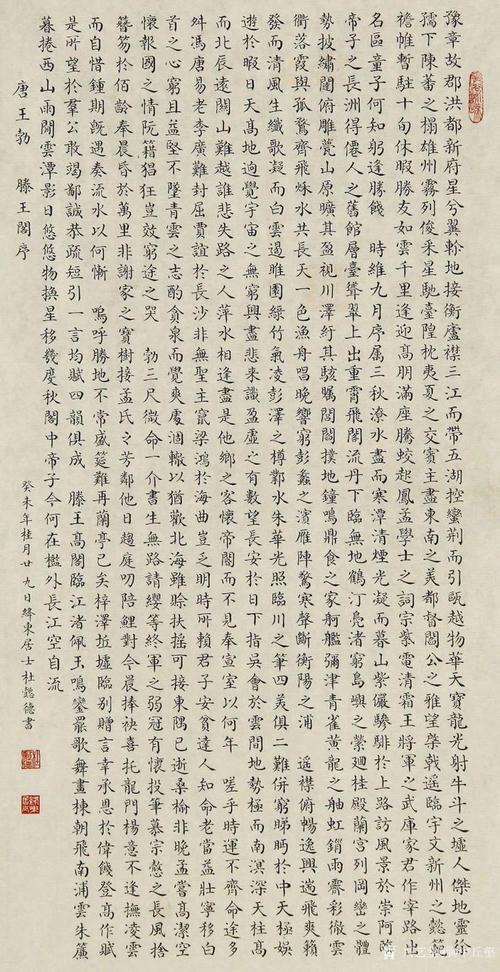 豫章故郡洪都新府星分翼軫地接衡廬襟三江而帶五湖控蠻荊而引甌越物華天寶龍光射牛斗之墟人傑地靈徐
孺下陳蕃之榻雄州霧列俊采星馳臺隍枕夷夏之交賓主盡東南之美都督閻公之雅望棨戟遙臨宇文新州之懿範
襜帷暫駐十旬休暇勝友如雲千里逢迎高朋滿座騰蛟起鳳孟學士之詞宗紫電清霜王將軍之武庫家君作宰路出
名區童子何知躬逢勝餞 時維九月序屬三秋潦水盡而寒潭清煙光凝而暮山紫儼驂騑於上路訪風景於崇阿臨
帝子之長洲得僊人之舊館層臺聳翠上出重霄飛閣流丹下臨無地鶴汀鳧渚窮島嶼之縈迴桂殿蘭宮列岡巒之體
勢披繡闥俯雕甍山原曠其盈視川澤紆其駭矚閭閻撲地鐘鳴鼎食之家舸艦彌津青雀黃龍之舳虹銷雨霽彩徹雲
衢落霞與孤鶩齊飛秋水共長天一色漁舟唱晚響窮彭蠡之濱雁陣驚寒聲斷衡陽之浦 遙襟俯暢逸興遄飛爽籟
發而清風生纖歌凝而白雲遏睢園綠竹氣凌彭澤之樽鄴水朱華光照臨川之筆四美俱二難併窮睇眄於中天極娛
遊於暇日天高地迥覺宇宙之無窮興盡悲來識盈虛之有數望長安於日下指吳會於雲間地勢極而南溟深天柱高
而北辰遠關山難越誰悲失路之人萍水相逢盡是他鄉之客懷帝閽而不見奉宣室以何年 嗟乎時運不齊命途多
舛馮唐易老李廣難封屈賈誼於長沙非無聖主竄梁鴻於海曲豈乏明時所賴君子安貧達人知命老當益壯寧移白
首之心窮且益堅不墜青雲之志酌貪泉而覺爽處涸轍以猶歡北海雖賒扶搖可接東隅已逝桑榆非晚孟嘗高潔空
懷報國之情阮籍猖狂豈效窮途之哭 勃三尺微命一介書生無路請纓等終軍之弱冠有懷投筆慕宗愨之長風捨
簪笏於百齡奉晨昏於萬里非謝家之寶樹接孟氏之芳鄰他日趨庭叨陪鯉對今晨捧袂喜托龍門楊意不逢撫凌雲
而自惜鍾期既遇奏流水以何慚 嗚呼勝地不常盛筵難再蘭亭已矣梓澤坵墟臨別贈言幸承恩於偉餞登高作賦
是所望於羣公敢竭鄙誠恭疏短引一言均賦四韻俱成 滕王高閣臨江渚佩玉鳴鸞罷歌舞畫棟朝飛南浦雲朱簾
暮捲西山雨閒雲潭影日悠悠物換星移幾度秋閣中帝子今何在檻外長江空自流
唐王勃 滕王閣序
癸未年桂月廿九日絳東居士杜懿德書